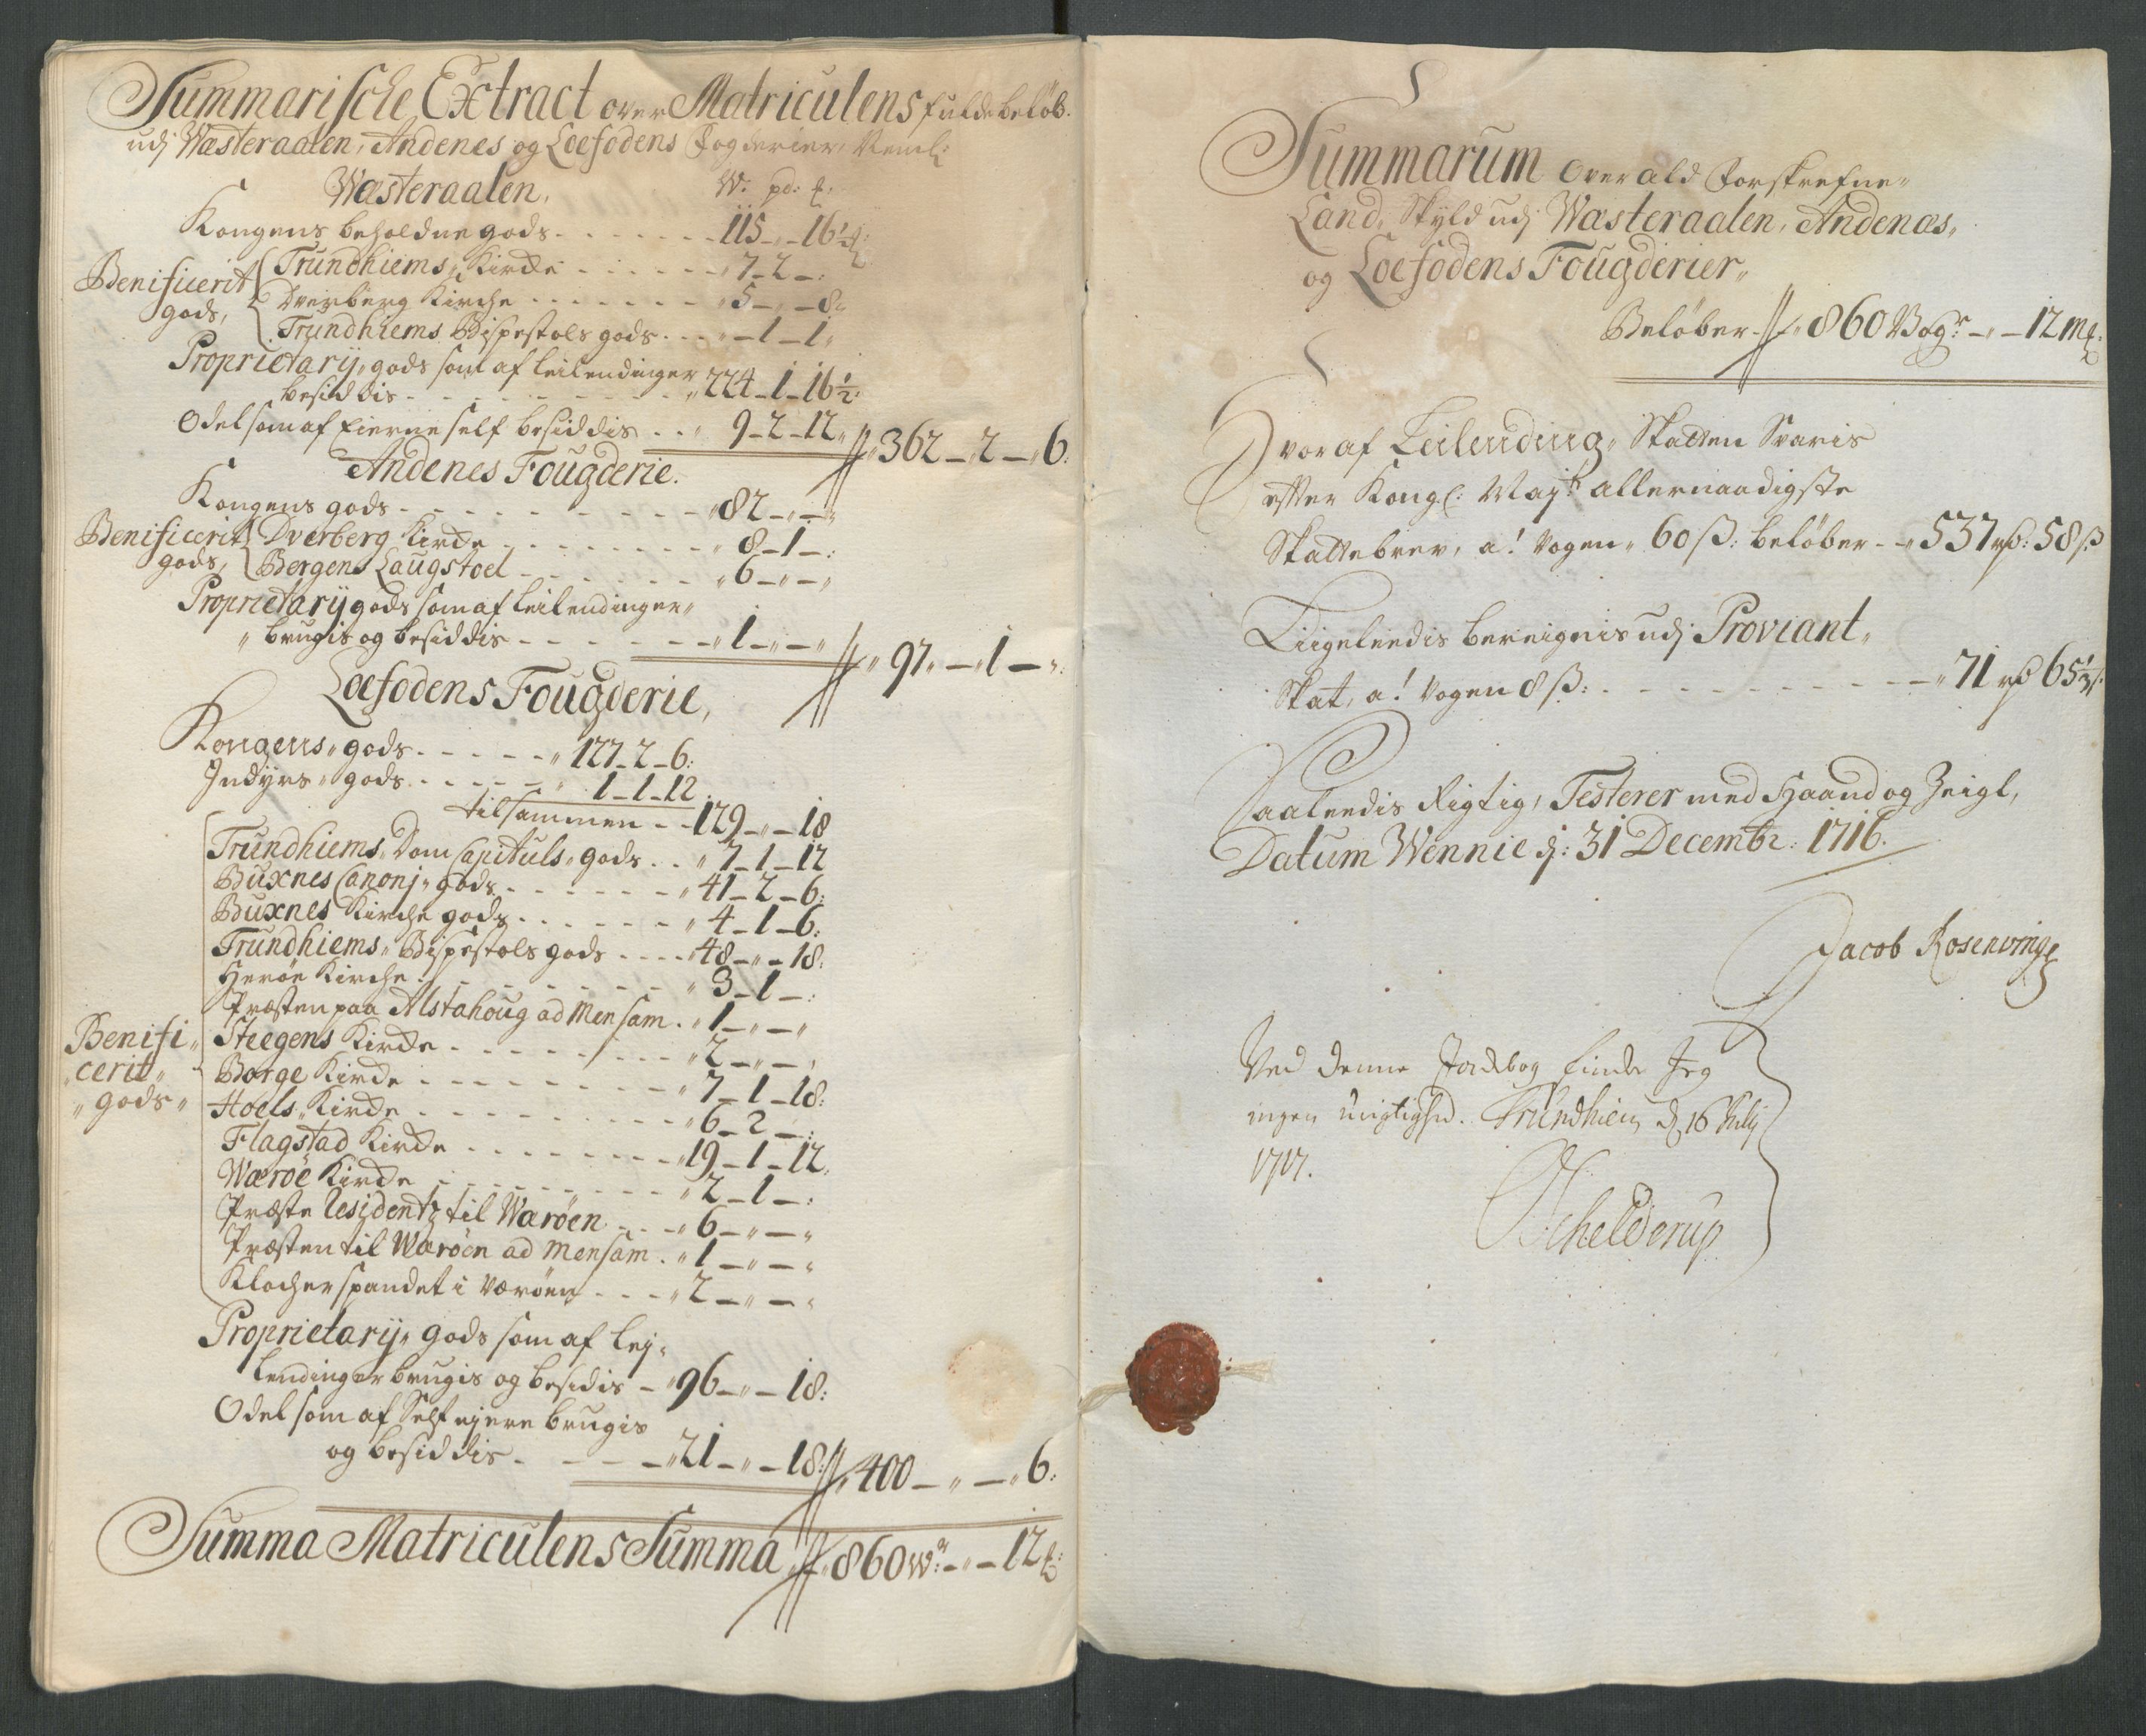 Summarische Extract over Matriculens fulde beløb
udj Wæsteraalen, Andenes og Loefodens Fogderier, Neml:
Wæsteraalen, W: pd: £:
Kongens beholdne gods - - - 115 - „ - 16½:
Benificerit gods,
Trundhiems Kircke - - - 7 - 2 - :
Dverberg Kirche - - - „ 5 - „ - 8
Trundhiems Bispestols gods - - - „ - 1 - 1 „
Proprietarij gods som af leilendinger
besiddis - - - „ 224 - 1 - 16½:
Odel som af Eierne self besiddis - - „ 9 - 2 - 12 „ // „ 362 - „ 2 - „ 6:
Andenes Fougderie.
Kongens gods - - - „ 82 - „ - „
Benificerit gods,
Dverberg Kircke - - - „ 8 - 1 - :
Bergens Laugstoel - - - „ 6 - „ - „
Proprietarij gods som af leilendinger „
„ brugis og besiddis - - - „ 1 - „ - „ // „ 97 „ - „ 1 - „:
Loefodens Fougderie,
Kongens „ gods - - - „ 127 - 2 - 6:
Indÿrs „ gods - - - „ 1 - 1 - 12
tilsammen - - 129 - „ - 18
Benifi„
cerit„
„gods„
Trundhiems Dom Capituls „ gods - - „ 7 - 1 - 12
Buxnes Canonj „ gods - - - „ 41 - 2 - 6:
Buxnes Kirche gods - - - „ 4 - 1 - 6:
Trundhiems „ Bispestols gods - - - „ 48 - „ - 18:
Herøe Kirche - - - „ 3 - 1 - :
Præsten paa Alstahoug ad Mensam - „ 1 - „ - „
Steegens Kircke - - - „ 2 - „ - ,
Borge Kircke - - - „ 7 - 1 - 18:
Hoels „ Kircke - - - „ 6 - 2 - :
Flagstad Kircke - - - „ 19 - 1 - 12,
Wærøe Kircke - - - „ 2 - 1 - :
Præste Residentz til Wærøen - - - „ 6 - „ - „
Præsten til Wærøen ad Mensam - „ 1 - „ - „
Klocherspandet i Værøen - - - „ 2 - „ - „
Proprietarij „ gods som af lej„
lendinger brugis og besidis - „ 96 - „ - 18:
Odel som af Self ejere brugis
og besiddis - - - „ 21 - „ - 18: // „ 400 - „ - „ 6:
Summa Matriculens Summa // „ 860 W: - „ - 12 £:
Summarum over ald Forskrefne „
Land „ Skÿld udj Wæsteraalen, Andenæs,
og Loefodens Fougderier „
Beløber - // „ 860 Vogr: - „ - 12 m£:
Hvoraf Leilending „ Skatten Svaris
efter Kongl: Mayts allernaadigste
Skattebrev, a! Vogen „ 60 ß: beløber - „ 537 rd: 58 ß
Liigeleedis bereignis udj Proviant „
Skat, a! Vogen 8 ß: - - - „ 71 rd 65⅓ ß
Saaleedis Rigtig, Testerer med Haand og Zeigl,
Datum Wennie d: 31 Decembr: 1716.
Jacob Rosenvinge
Ved denne Jordebog finder Jeg
ingen urigtighed. Trundhiem d 16 July
1717.
Schelderup